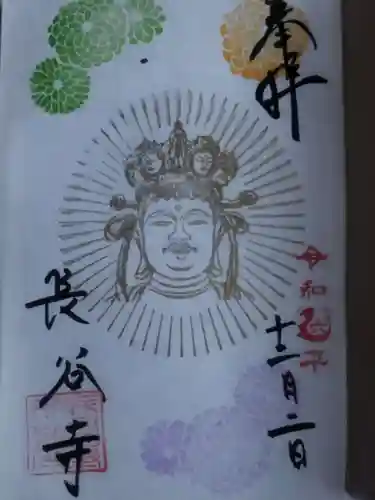 奉拝
令和 年
十二月二日
長谷寺